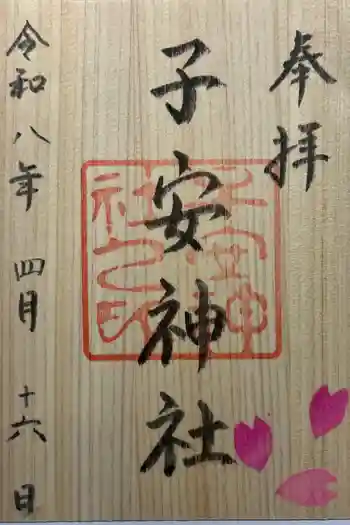 奉拝
子安神社
子安神社之印
令和八年 四月 十六日